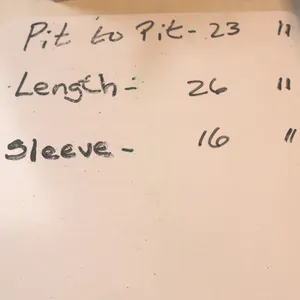 Pit to Pit - 23 "
Length - 26 "
Sleeve - 16 "